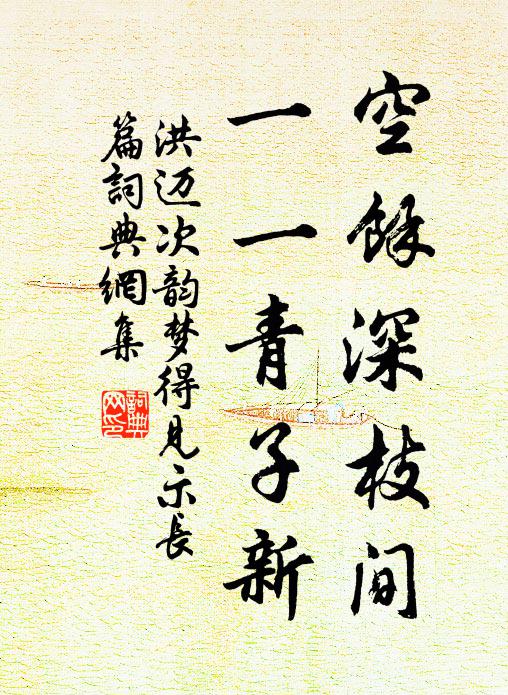 空餘深枝间
一一青子新
洪迈次韵梦得见示长
篇詞典網集
詞典
网印